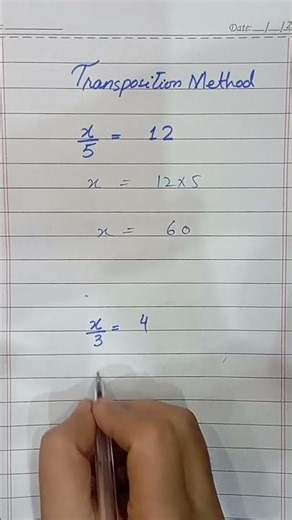 Date: __/__/2
Transposition Method
x/5 = 12
x = 12×5
x = 60
x/3 = 4